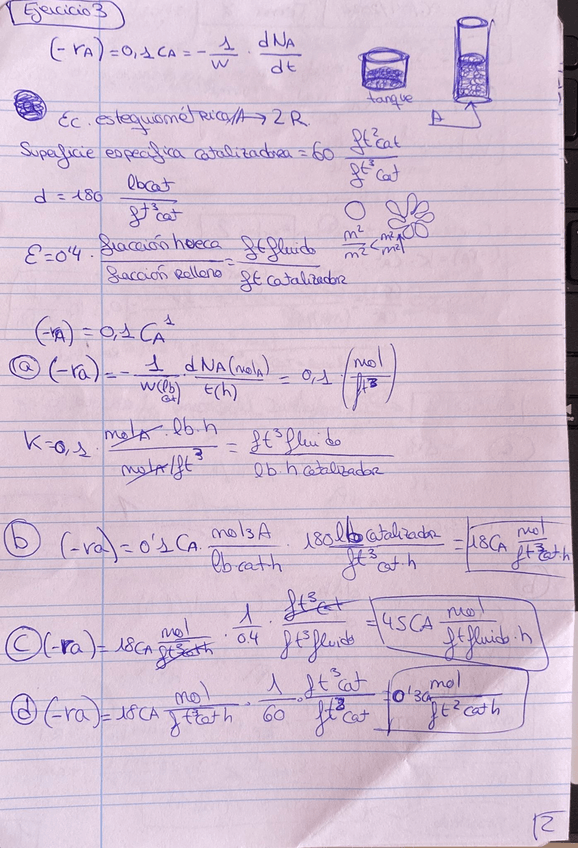 Ejercicio 3
(-rA) = 0,1 CA = - 1/W · dNA/dt
tanque
A
Ec. estequiométrica/A → 2R.
Superficie específica catalizadora = 60 ft²cat/ft³cat
d = 180 lbcat/ft³cat
ε = 0'4 · fracción hueca/fracción relleno = ft fluido/ft catalizador
m²/m² < m²/m²
(-rA) = 0,1 CA¹
a (-ra) = - 1/W(lb cat) · dNA(molA)/t(h) = 0,1 · (mol/ft³)
K = 0,1 · molA · lb·h/molA/ft³ = ft³ fluido/lb·h catalizador
b (-ra) = 0'1 CA · mols A/lb cat·h · 180 lb catalizador/ft³ cat·h = 18CA mol/ft³cat·h
c (-ra) = 18CA mol/ft³cath · 1/0.4 · ft³cat/ft³fluido = 45CA mol/ft fluido·h
d (-ra) = 18CA mol/ft³cath · 1/60 · ft³cat/ft²cat = 0'3CA mol/ft² cath
12